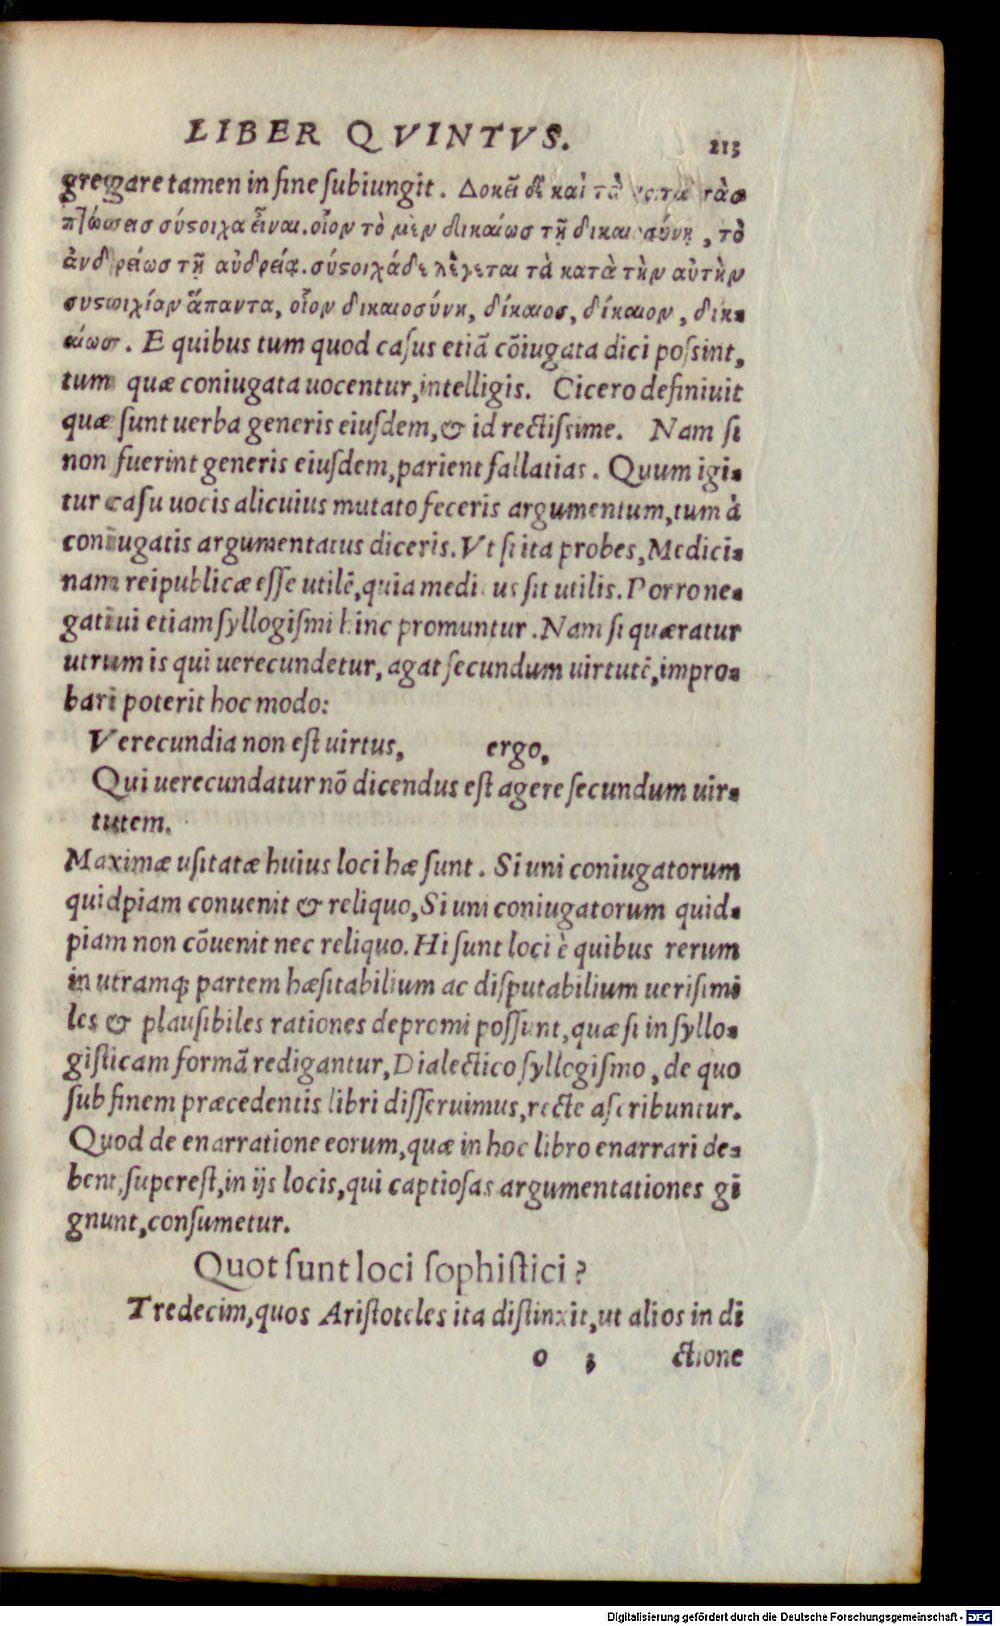 LIBER QVINTVS. 213
gregare tamen in fine subiungit. Δοκεῖ δὲ καὶ τὰ κατὰ τὰσ
πτώσεισ σύςοιχα εἶναι. οἷον τὸ μὲν δικαίωσ τῇ δικαιοσύνῃ, τὸ
ἀνδρείωσ τῇ αὐδρείᾳ. σύςοιχά δε λέγεται τὰ κατὰ τὴν αὐτὴν
συςοιχίαν ἅπαντα, οἷον δικαιοσύνη, δίκαιοσ, δίκαιον, δικ-
αίωσ. E quibus tum quod casus etiā cōiugata dici possint,
tum quæ coniugata uocentur, intelligis. Cicero definiuit
quæ sunt uerba generis eiusdem, & id rectissime. Nam si
non fuerint generis eiusdem, parient fallatias. Quum igi-
tur casu uocis alicuius mutato feceris argumentum, tum à
coniugatis argumentatus diceris. Vt si ita probes, Medici-
nam reipublicæ esse utilē, quia medicus sit utilis. Porro ne-
gatiui etiam syllogismi hinc promuntur. Nam si quæratur
utrum is qui uerecundetur, agat secundum uirtutē, impro-
bari poterit hoc modo:
Verecundia non est uirtus, ergo,
Qui uerecundatur nō dicendus est agere secundum uir-
tutem.
Maximæ usitatæ huius loci hæ sunt. Si uni coniugatorum
quidpiam conuenit & reliquo, Si uni coniugatorum quid-
piam non cōuenit nec reliquo. Hi sunt loci è quibus rerum
in utramq; partem hæsitabilium ac disputabilium uerisimi
les & plausibiles rationes depromi possunt, quæ si in syllo-
gisticam formā redigantur, Dialectico syllogismo, de quo
sub finem præcedentis libri disseruimus, recte ascribuntur.
Quod de enarratione eorum, quæ in hoc libro enarrari de-
bent, superest, in ijs locis, qui captiosas argumentationes gi
gnunt, consumetur.
Quot sunt loci sophistici?
Tredecim, quos Aristoteles ita distinxit, ut alios in di
o 3 ctione
Digitalisierung gefördert durch die Deutsche Forschungsgemeinschaft - DFG